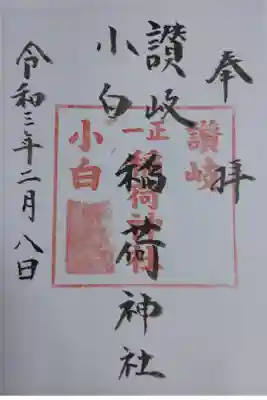 奉拝
讃岐
小白
稲荷神社
令和三年二月八日
讃岐
正一
稲荷神社
小白